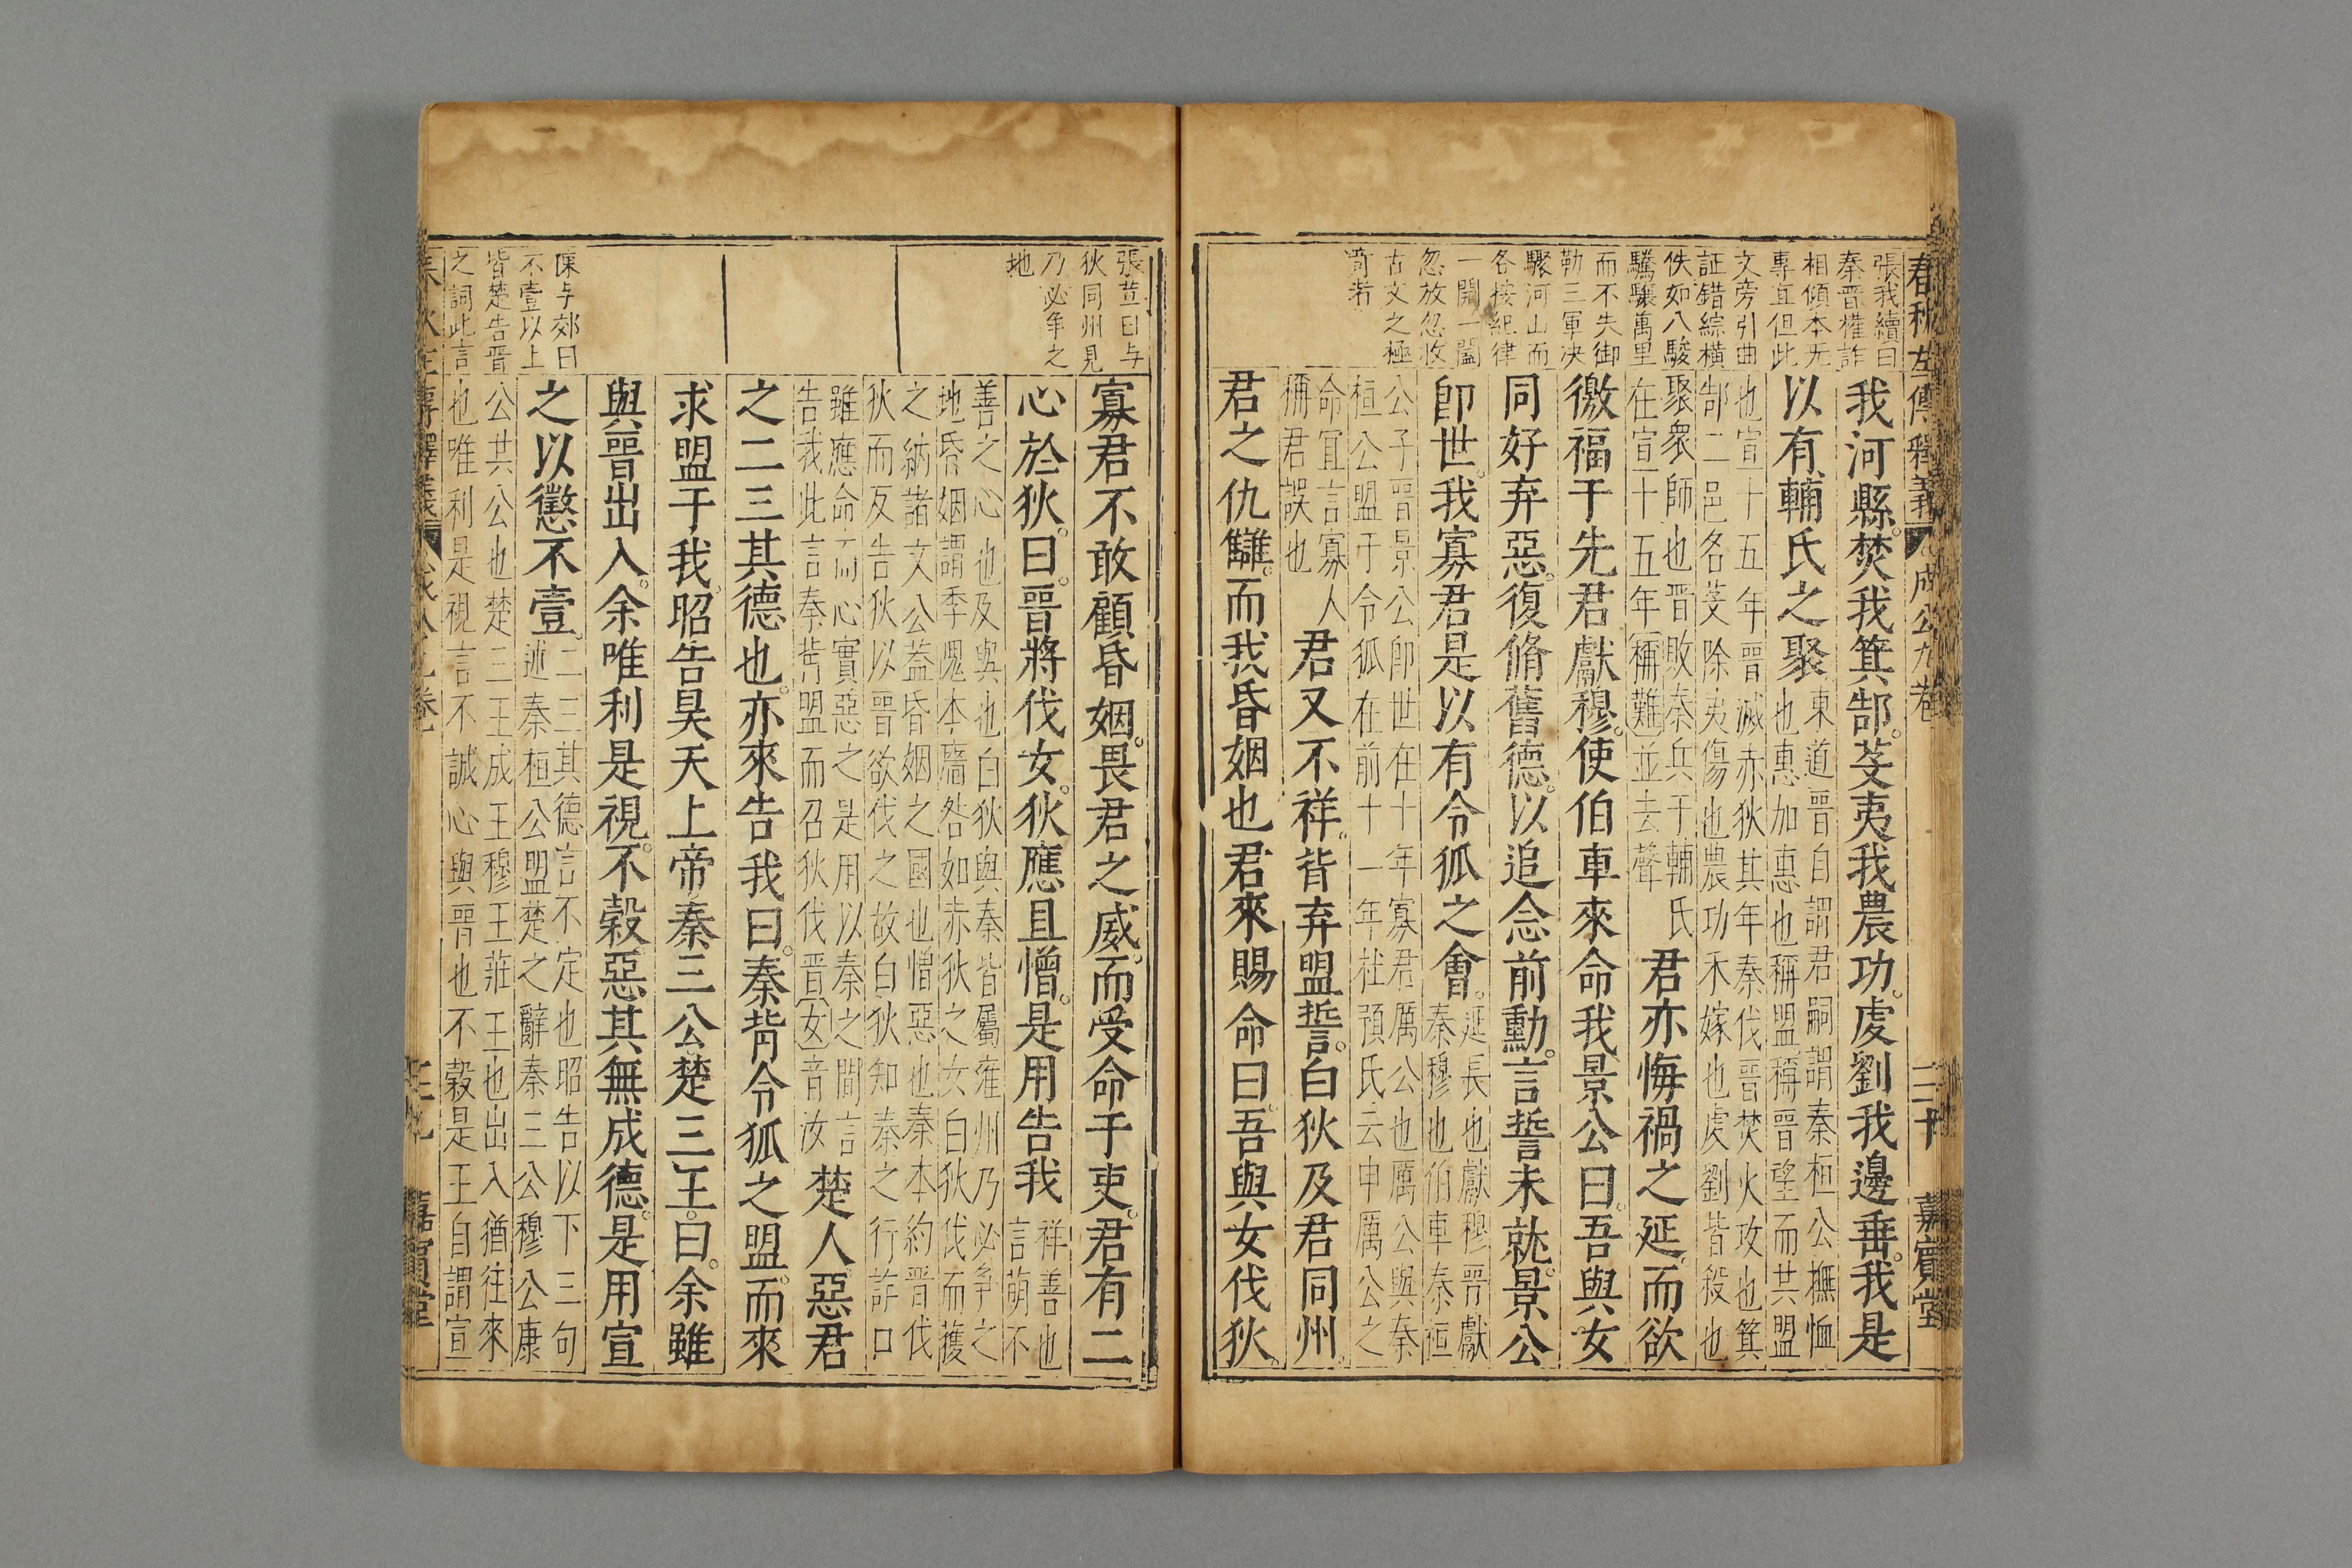 春秋左傳釋義 成公九卷 三十 嘉賓堂
張我續曰
秦晋權詐
相傾本无
專直但此
文旁引曲
証錯綜橫
佚如八駿
驕驤萬里
而不失御
勒三軍决
驟河山而
各按紀律
一開一闔
忽放忽收
古文之極
奇者
我河縣焚我箕郜芟夷我農功虔劉我邊垂我是
以有輔氏之聚東道晋自謂君嗣謂秦桓公撫恤
也惠加惠也稱盟稱晋望而共盟
也宣十五年晋滅赤狄其年秦伐晋焚火攻也箕
郜二邑名芟除夷傷也農功禾嫁也虔劉皆殺也
聚衆師也晋敗秦兵于輔氏
在宣十五年稱難並去聲
君亦悔禍之延而欲
徼福于先君獻穆使伯車來命我景公曰吾與女
同好弃惡復脩舊德以追念前勳言誓未就景公
即世我寡君是以有令狐之會延長也獻穆晋獻
秦穆也伯車秦桓
公子晋景公卽世在十年寡君厲公也厲公與秦
桓公盟于令狐在前十一年杜預氏云申厲公之
命宜言寡人
稱君誤也
君又不祥背弃盟誓白狄及君同州
君之仇讎而我昏姻也君來賜命曰吾與女伐狄
張荳曰与
狄同州見
乃必争之
地
寡君不敢顧昏姻畏君之威而受命于吏君有二
心於狄曰晋將伐女狄應且憎是用告我祥善也
言萌不
善之心也及與也白狄與秦皆屬雍州乃必争之
地昏姻謂季隗本廧咎如赤狄之女白狄伐而獲
之納諸文公葢昏姻之國也憎惡也秦本約晋伐
狄而反告狄以晋欲伐之故白狄知秦之行詐口
雖應命而心實惡之是用以秦之間言
告我此言秦背盟而召狄伐晋女音汝
楚人惡君
之二三其德也亦來告我曰秦背令狐之盟而來
求盟于我昭告昊天上帝秦三公楚三王曰余雖
與晋出入余唯利是視不穀惡其無成德是用宣
陳与郊曰
不壹以上
皆楚告晋
之詞此言
之以懲不壹二三其德言不定也昭告以下三句
述秦桓公盟楚之辭秦三公穆公康
公共公也楚三王成王穆王莊王也出入猶往來
也唯利是視言不誠心與晋也不穀是王自謂宣